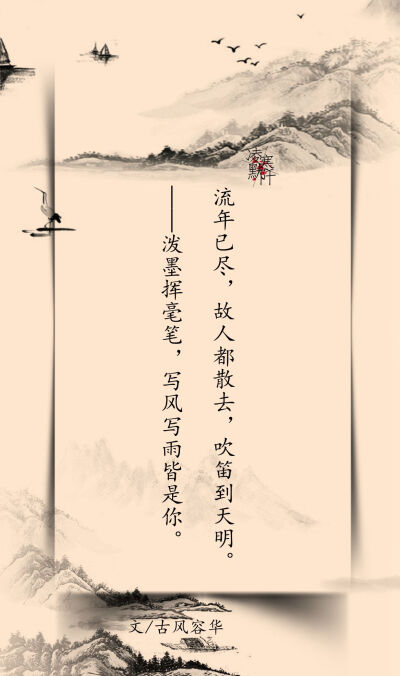 流年已尽，故人都散去，吹笛到天明。
——泼墨挥毫笔，写风写雨皆是你。
文/古风容华